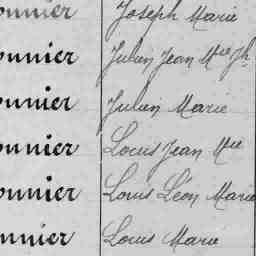 onnier Joseph Marie
onnier Julien Jean Mie Jh
onnier Julien Marie
onnier Louis Jean Mie
onnier Louis Léon Marie
onnier Louis Marie